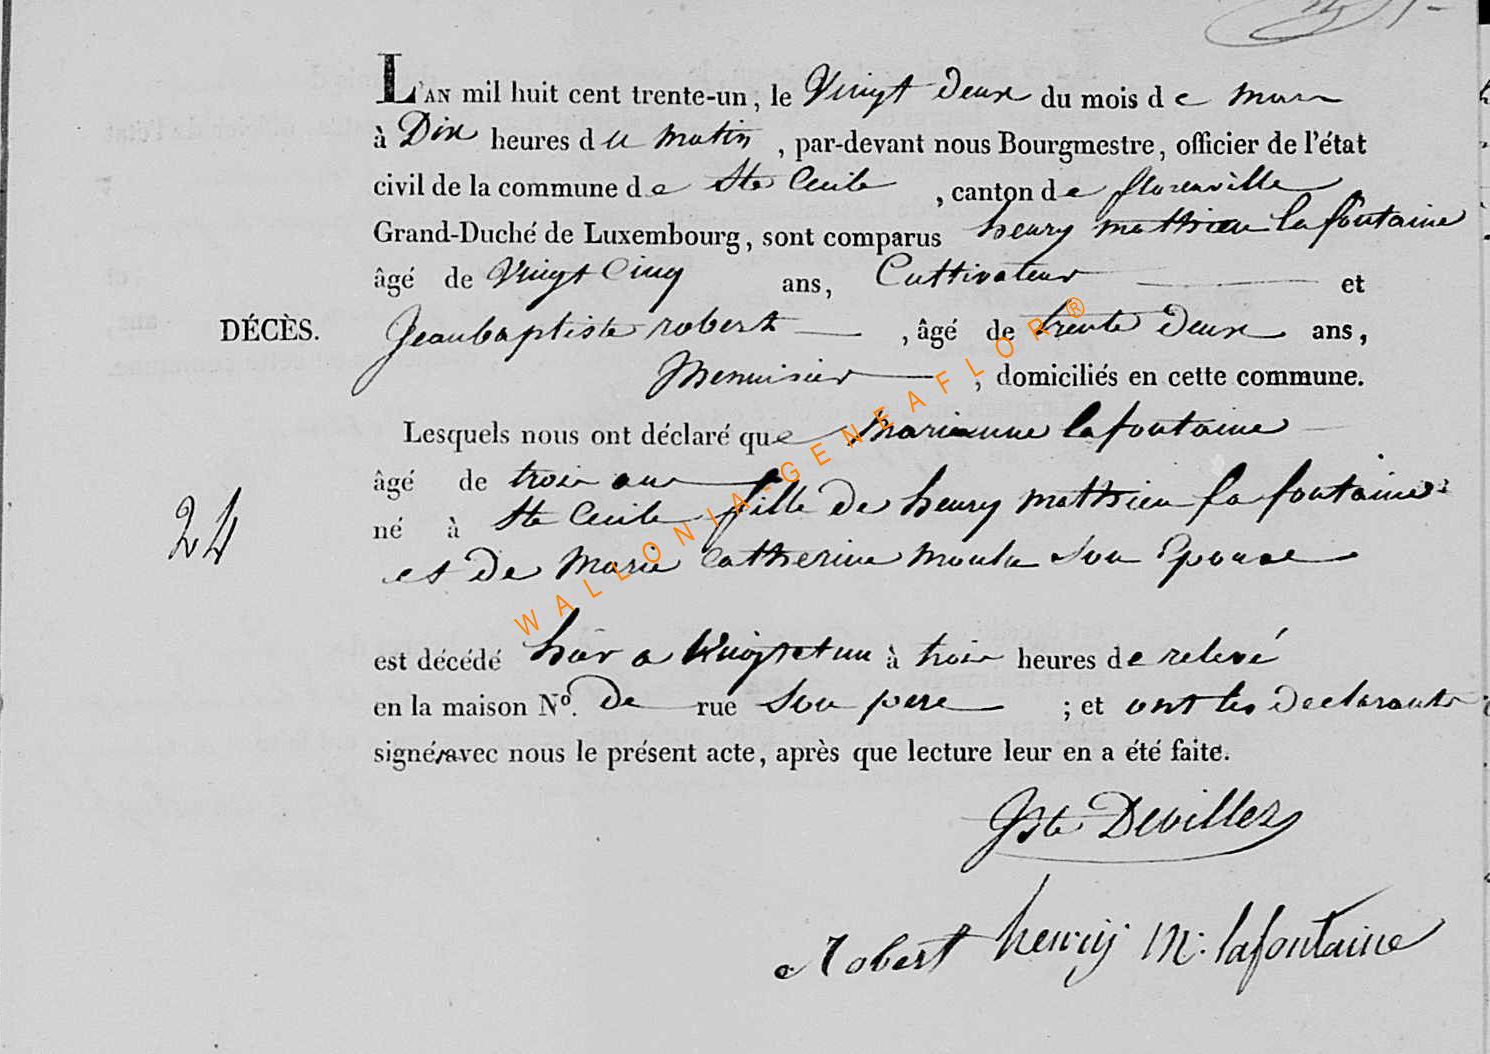 L'AN mil huit cent trente-un, le Vingt deux du mois de mars
à Dix heures du matin, par-devant nous Bourgmestre, officier de l'état
civil de la commune de Ste Cecile, canton de florenville
Grand-Duché de Luxembourg, sont comparus henry mathieu lafontaine
âgé de Vingt Cinq ans, Cultivateur et
DÉCÈS. Jeanbaptiste robert, âgé de trente Deux ans,
Menuisier, domiciliés en cette commune.
Lesquels nous ont déclaré que marianne lafontaine
âgé de trois ans
24
né à Ste Cecile fille de henry mathieu lafontaine
et de Marie Catherine Moula son Epouse
est décédé hier a Vingt et un à trois heures de relevé
en la maison Nº. De rue Son pere ; et ont les declarants
signés avec nous le présent acte, après que lecture leur en a été faite.
Jste Devillez
Robert henry M: lafontaine
WALLONIA-GENEAFLOR®